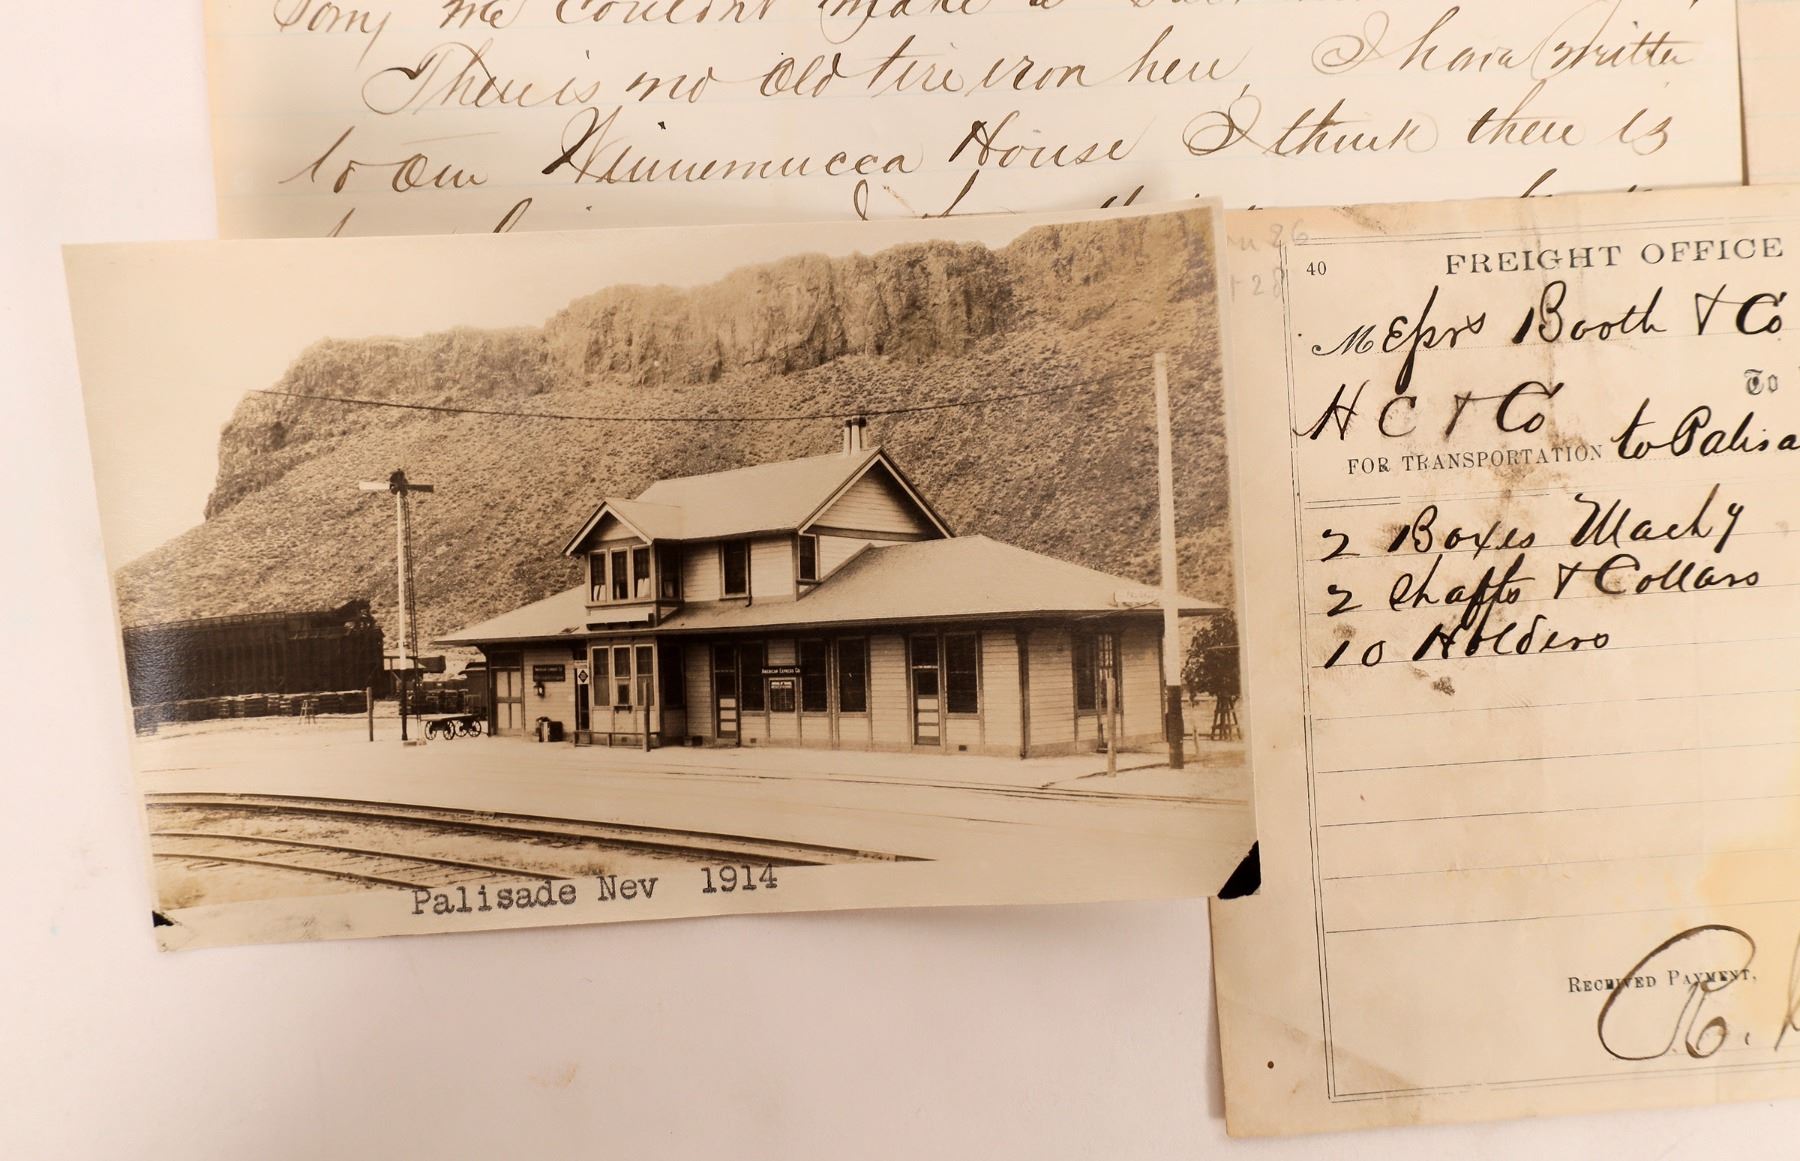 Sorry we couldnt make a
There is no old tire iron here, I have written
to our Winnemucca House I think there is
40
FREIGHT OFFICE
Messrs Booth & Co
To
H C & Co
FOR TRANSPORTATION to Palisa
2 Boxes Machy
2 Shafts & Collars
10 Holders
RECEIVED PAYMENT,
AMERICAN EXPRESS CO.
Palisade Nev 1914